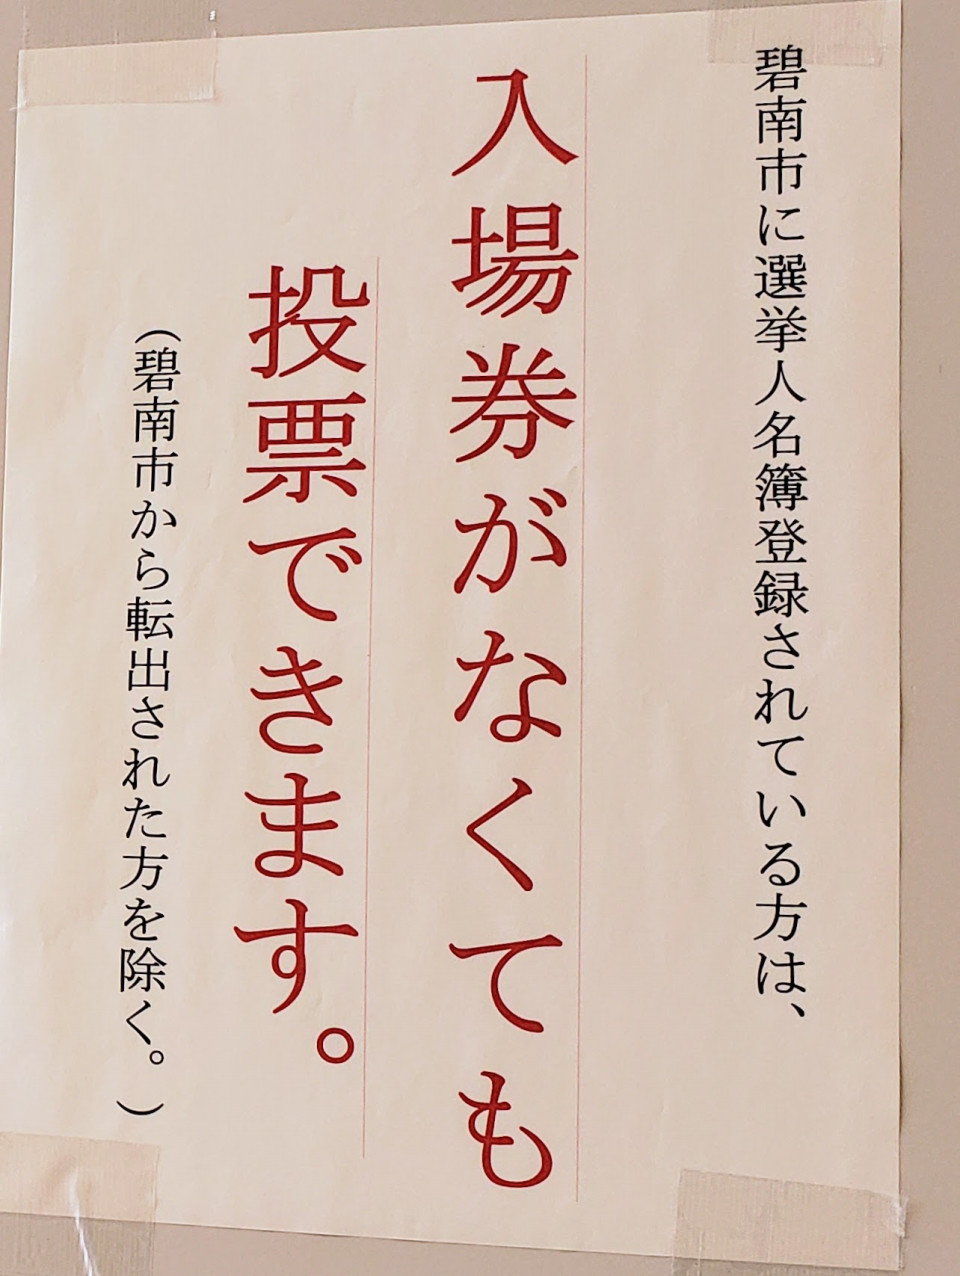 碧南市に選挙人名簿登録されている方は、
入場券がなくても
投票できます。
（碧南市から転出された方を除く。）